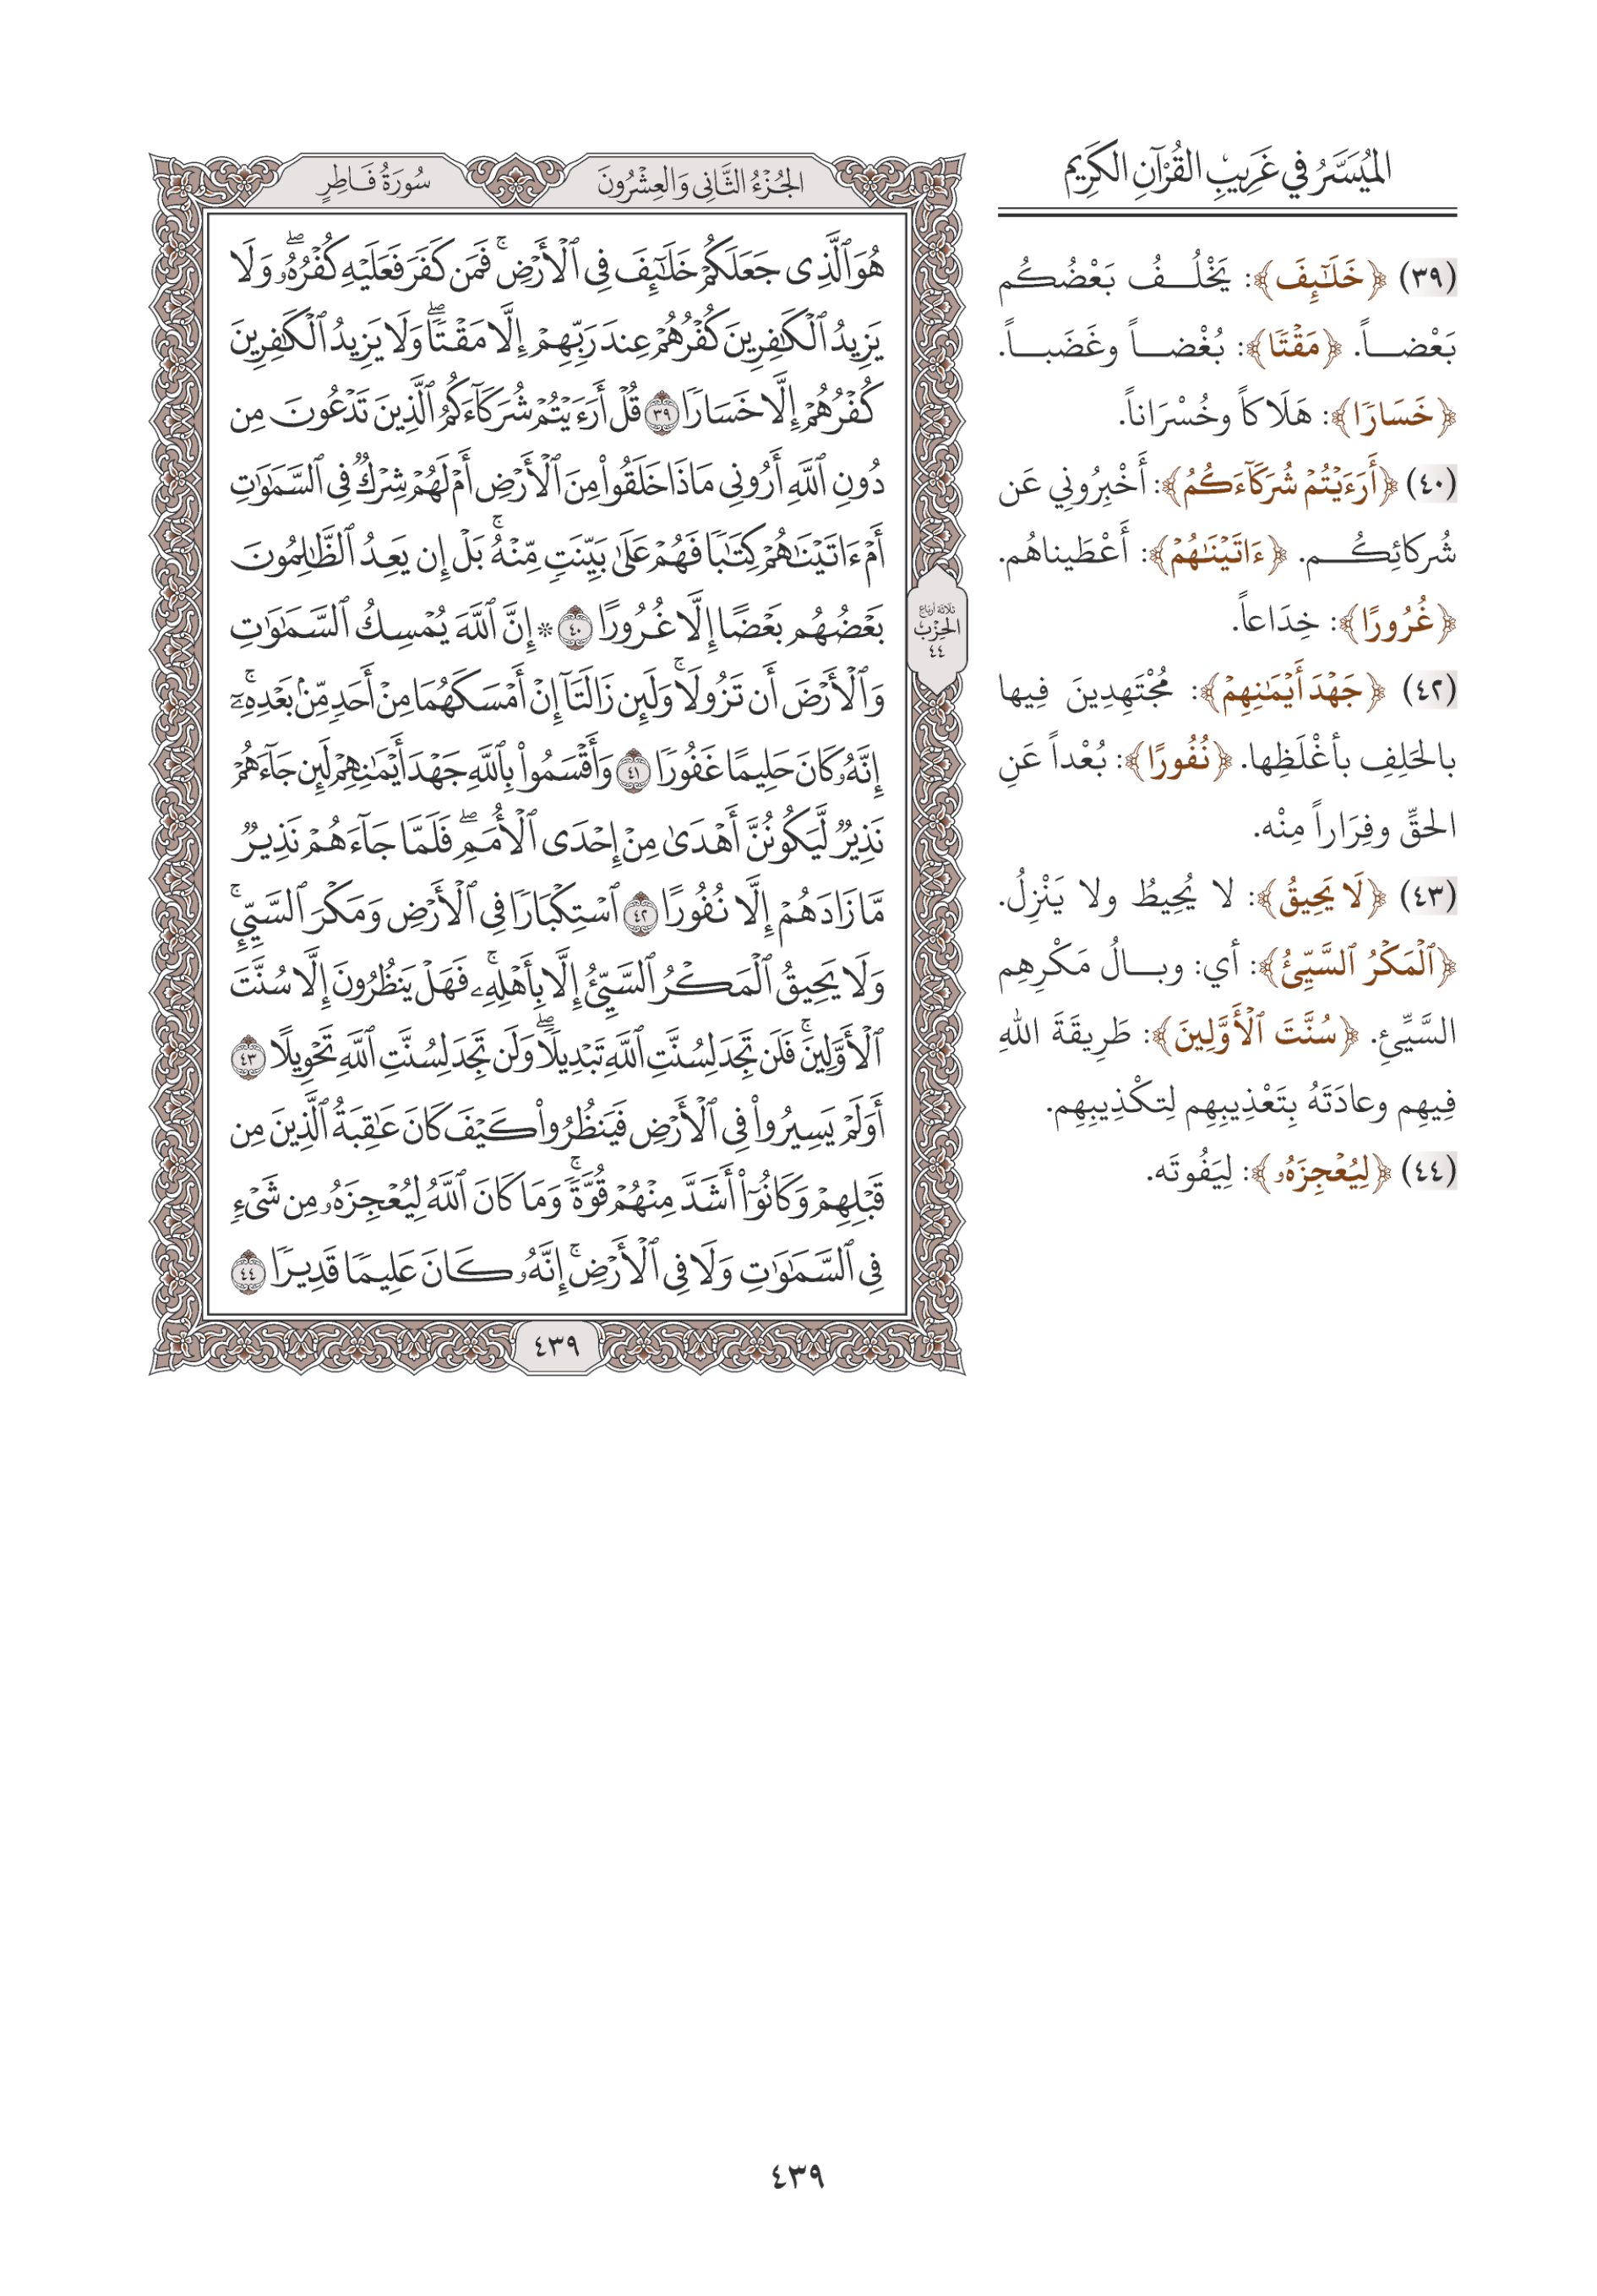 المُيَسَّرُ في غَرِيبِ القُرْآنِ الكَرِيم
(٣٩) ﴿خَلَـٰٓئِفَ﴾: يَخْلُـــفُ بَعْضُكُم
بَعْضـــاً. ﴿مَقْتٗا﴾: بُغْضـــاً وغَضَبـــاً.
﴿خَسَارٗا﴾: هَلَاكاً وخُسْرَاناً.
(٤٠) ﴿أَرَءَيْتُمْ شُرَكَآءَكُمُ﴾: أَخْبِرُوني عَن
شُركائِكُـــم. ﴿ءَاتَيْنَـٰهُمْ﴾: أَعْطَيناهُم.
﴿غُرُورًا﴾: خِدَاعاً.
(٤٢) ﴿جَهْدَ أَيْمَـٰنِهِمْ﴾: مُجْتَهِدِينَ فِيها
بالحَلِفِ بأغْلَظِها. ﴿نُفُورًا﴾: بُعْداً عَنِ
الحقِّ وفِرَاراً مِنْه.
(٤٣) ﴿لَا يَحِيقُ﴾: لا يُحِيطُ ولا يَنْزِلُ.
﴿ٱلْمَكْرُ ٱلسَّيِّئُ﴾: أي: وبـــالُ مَكْرِهِم
السَّيِّئِ. ﴿سُنَّتَ ٱلْأَوَّلِينَ﴾: طَرِيقَةَ اللهِ
فِيهِم وعادَتَهُ بِتَعْذِيبِهِم لِتكْذِيبِهِم.
(٤٤) ﴿لِيُعْجِزَهُۥ﴾: لِيَفُوتَه.
الجُزْءُ الثَّانِي وَالعِشْرُونَ
سُورَةُ فَاطِرٍ
هُوَ ٱلَّذِى جَعَلَكُمْ خَلَـٰٓئِفَ فِى ٱلْأَرْضِۚ فَمَن كَفَرَ فَعَلَيْهِ كُفْرُهُۥۖ وَلَا
يَزِيدُ ٱلْكَـٰفِرِينَ كُفْرُهُمْ عِندَ رَبِّهِمْ إِلَّا مَقْتٗاۖ وَلَا يَزِيدُ ٱلْكَـٰفِرِينَ
كُفْرُهُمْ إِلَّا خَسَارٗا ٣٩ قُلْ أَرَءَيْتُمْ شُرَكَآءَكُمُ ٱلَّذِينَ تَدْعُونَ مِن
دُونِ ٱللَّهِ أَرُونِى مَاذَا خَلَقُوا۟ مِنَ ٱلْأَرْضِ أَمْ لَهُمْ شِرْكٞ فِى ٱلسَّمَـٰوَٰتِ
أَمْ ءَاتَيْنَـٰهُمْ كِتَـٰبٗا فَهُمْ عَلَىٰ بَيِّنَتٖ مِّنْهُۚ بَلْ إِن يَعِدُ ٱلظَّـٰلِمُونَ
بَعْضُهُم بَعْضًا إِلَّا غُرُورًا ٤٠ * إِنَّ ٱللَّهَ يُمْسِكُ ٱلسَّمَـٰوَٰتِ
وَٱلْأَرْضَ أَن تَزُولَاۚ وَلَئِن زَالَتَآ إِنْ أَمْسَكَهُمَا مِنْ أَحَدٖ مِّنۢ بَعْدِهِۦٓۚ
إِنَّهُۥ كَانَ حَلِيمًا غَفُورٗا ٤١ وَأَقْسَمُوا۟ بِٱللَّهِ جَهْدَ أَيْمَـٰنِهِمْ لَئِن جَآءَهُمْ
نَذِيرٞ لَّيَكُونُنَّ أَهْدَىٰ مِنْ إِحْدَى ٱلْأُمَمِۖ فَلَمَّا جَآءَهُمْ نَذِيرٞ
مَّا زَادَهُمْ إِلَّا نُفُورًا ٤٢ ٱسْتِكْبَارٗا فِى ٱلْأَرْضِ وَمَكْرَ ٱلسَّيِّئِۚ
وَلَا يَحِيقُ ٱلْمَكْرُ ٱلسَّيِّئُ إِلَّا بِأَهْلِهِۦۚ فَهَلْ يَنظُرُونَ إِلَّا سُنَّتَ
ٱلْأَوَّلِينَۚ فَلَن تَجِدَ لِسُنَّتِ ٱللَّهِ تَبْدِيلٗاۖ وَلَن تَجِدَ لِسُنَّتِ ٱللَّهِ تَحْوِيلًا ٤٣
أَوَلَمْ يَسِيرُوا۟ فِى ٱلْأَرْضِ فَيَنظُرُوا۟ كَيْفَ كَانَ عَـٰقِبَةُ ٱلَّذِينَ مِن
قَبْلِهِمْ وَكَانُوٓا۟ أَشَدَّ مِنْهُمْ قُوَّةٗۚ وَمَا كَانَ ٱللَّهُ لِيُعْجِزَهُۥ مِن شَىْءٖ
فِى ٱلسَّمَـٰوَٰتِ وَلَا فِى ٱلْأَرْضِۚ إِنَّهُۥ كَانَ عَلِيمٗا قَدِيرٗا ٤٤
ثلاثة أرباع
الحِزْب
٤٤
٤٣٩
٤٣٩